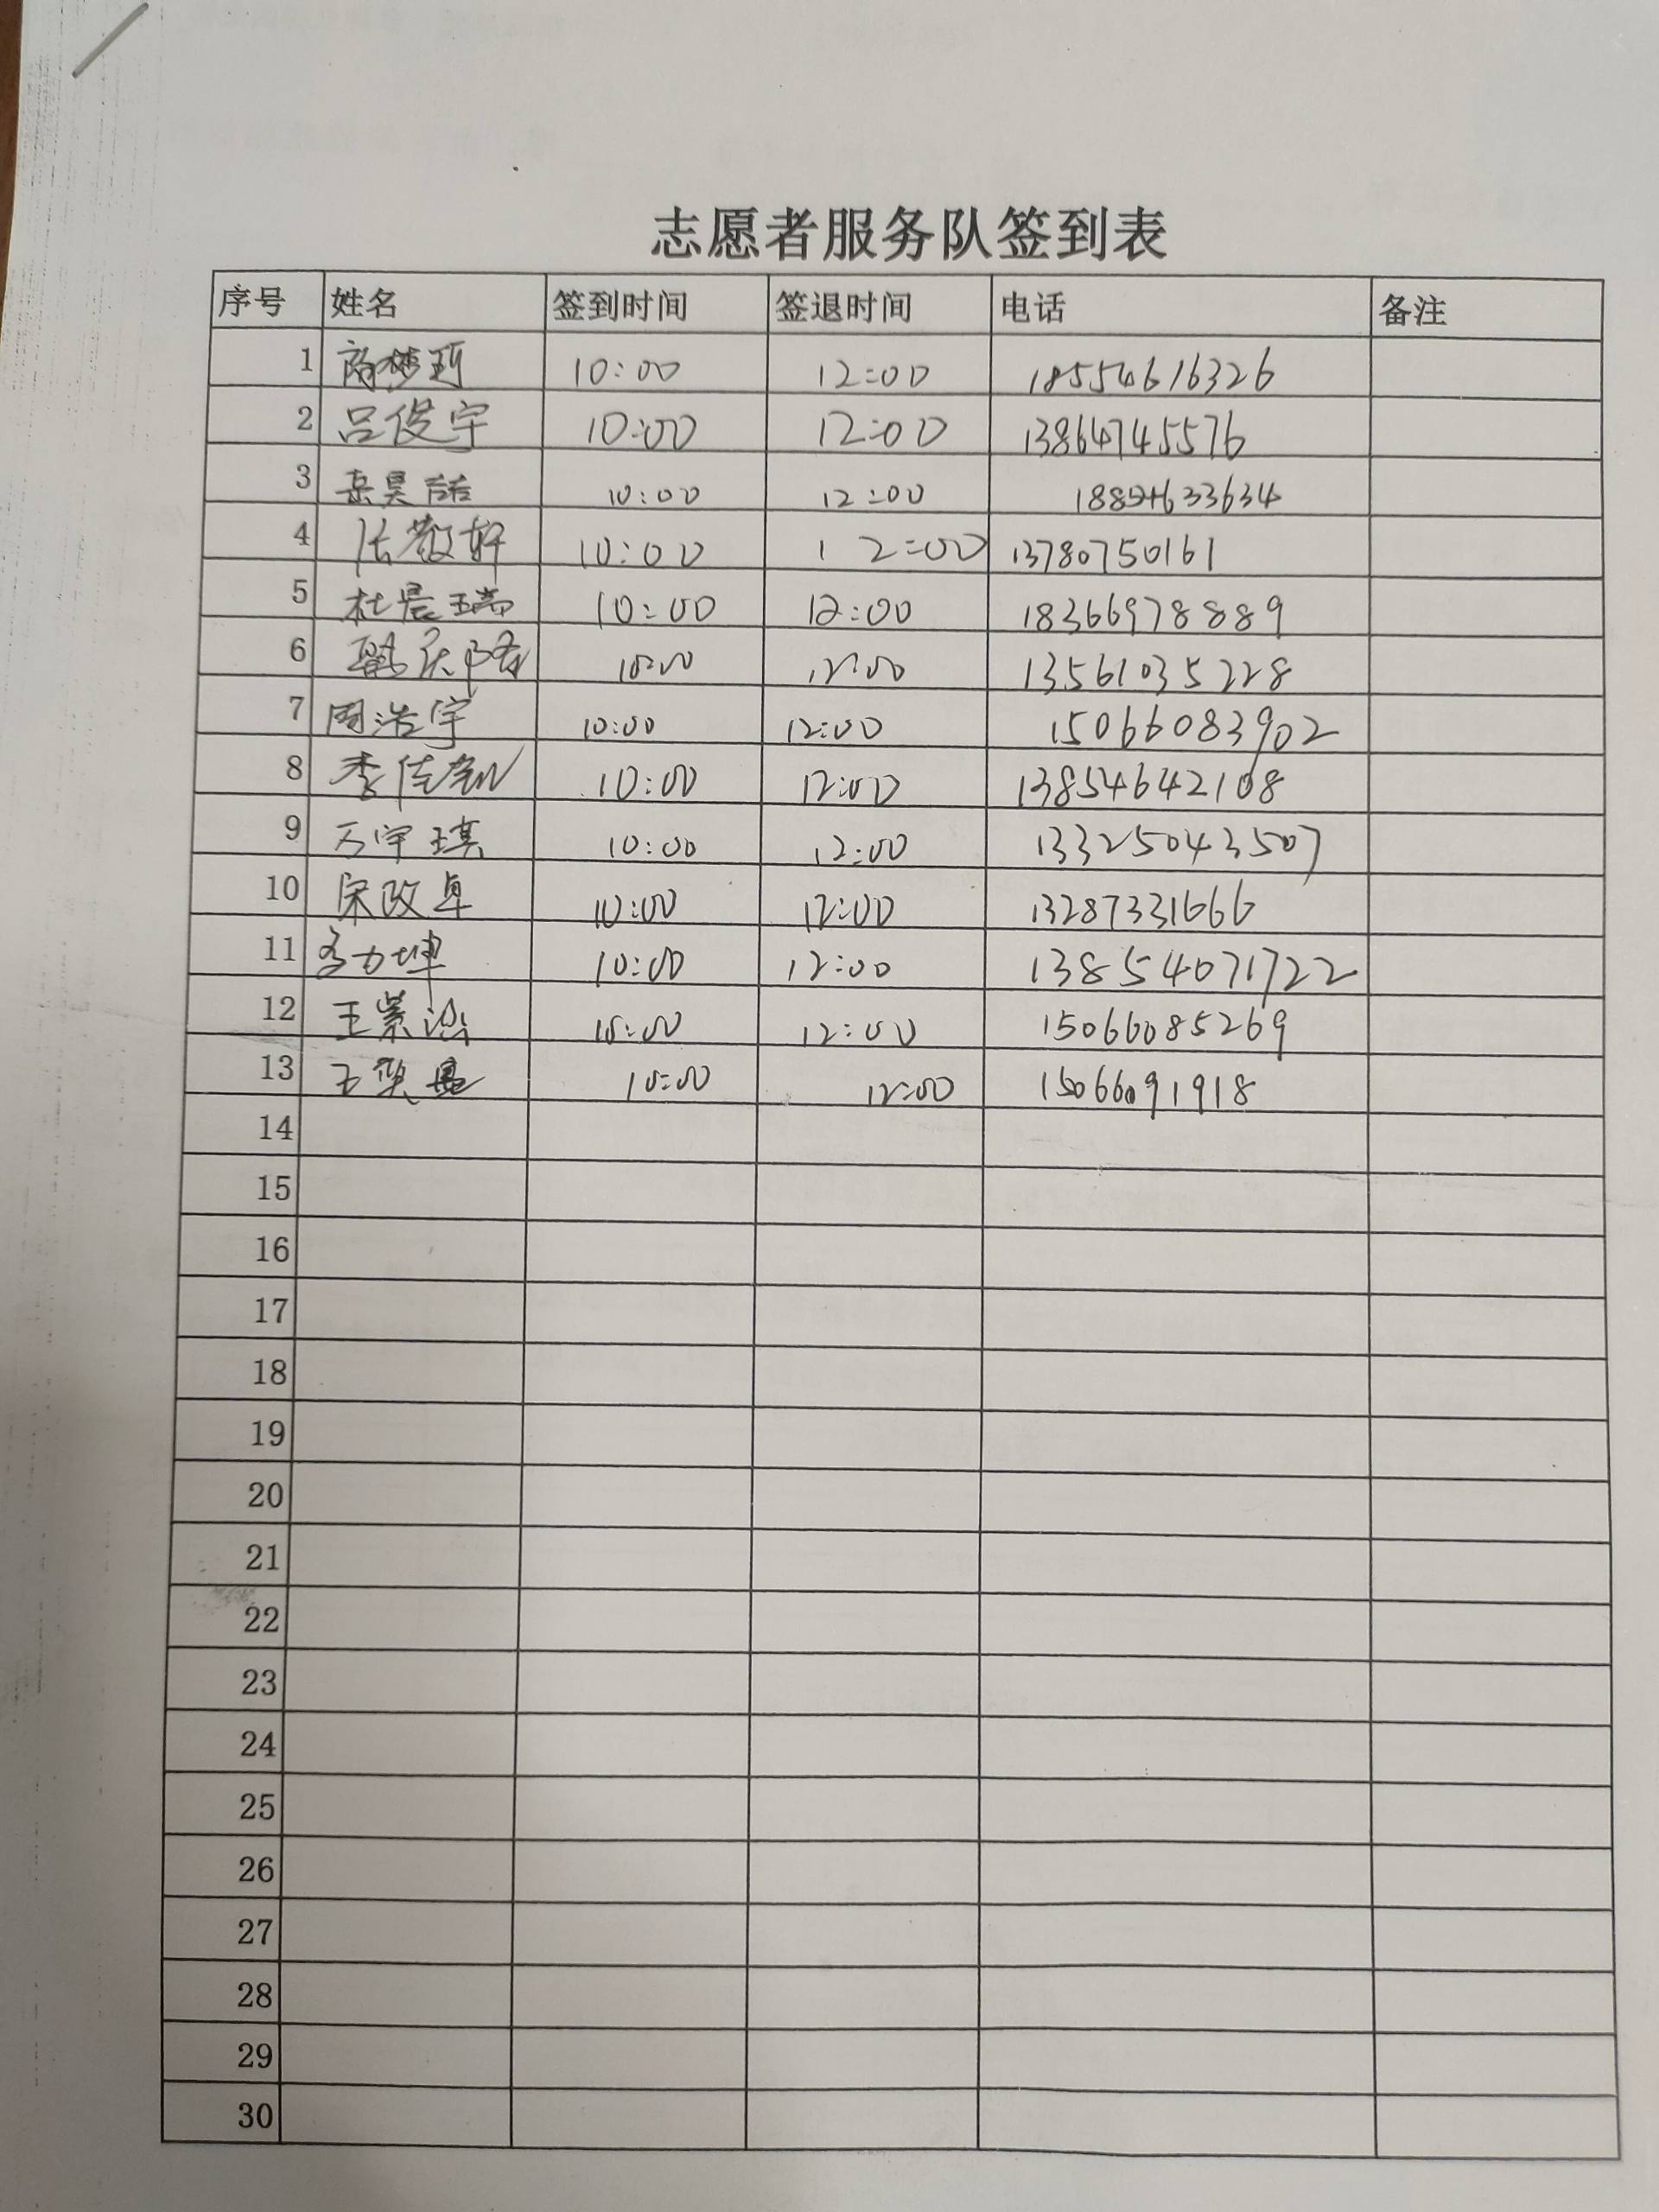 志愿者服务队签到表
序号 姓名 签到时间 签退时间 电话 备注
1 商梦珂 10:00 12:00 18554616326
2 吕俊宇 10:00 12:00 13864745576
3 昊喆 10:00 12:00
4 张敬轩 10:00 12:00 13780750161
5 杜晨瑞 10:00 12:00 18366978889
6 10:00 12:00 13561035228
7 周浩宇 10:00 12:00 15066083902
8 李佳 10:00 12:00 13854642108
9 万宇琪 10:00 12:00 13325043507
10 宋政卓 10:00 12:00 13287331666
11 10:00 12:00 13854071722
12 王紫 10:00 12:00 15066085269
13 王 10:00 12:00 15066091918
14
15
16
17
18
19
20
21
22
23
24
25
26
27
28
29
30